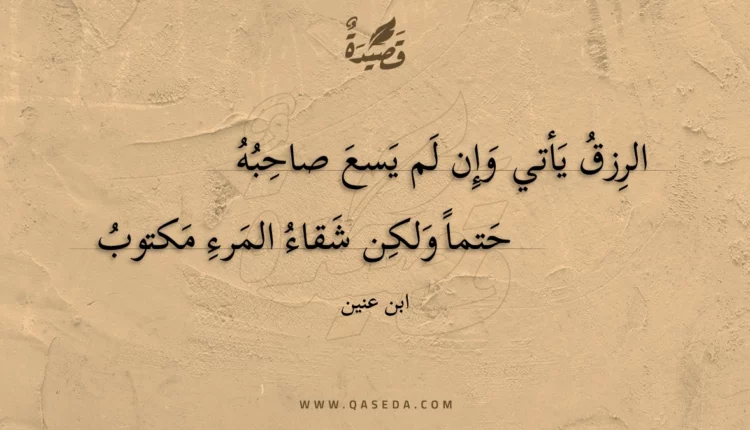 قَصِيْدَةٌ
الرِزقُ يَأتي وَإِن لَم يَسعَ صاحِبُهُ
حَتماً وَلكِن شَقاءُ المَرءِ مَكتوبُ
ابن عنين
WWW.QASEDA.COM